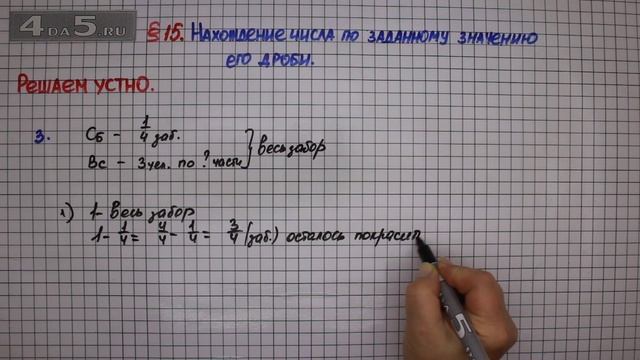 4DA5.RU
§ 15. Нахождение числа по заданному значению
его дроби.
Решаем устно.
3. Сб - 1/4 заб.
Вс - 3 чел. по ? части } весь забор
1) 1 - весь забор
1 - 1/4 = 4/4 - 1/4 = 3/4 (заб.) осталось покрасит
5